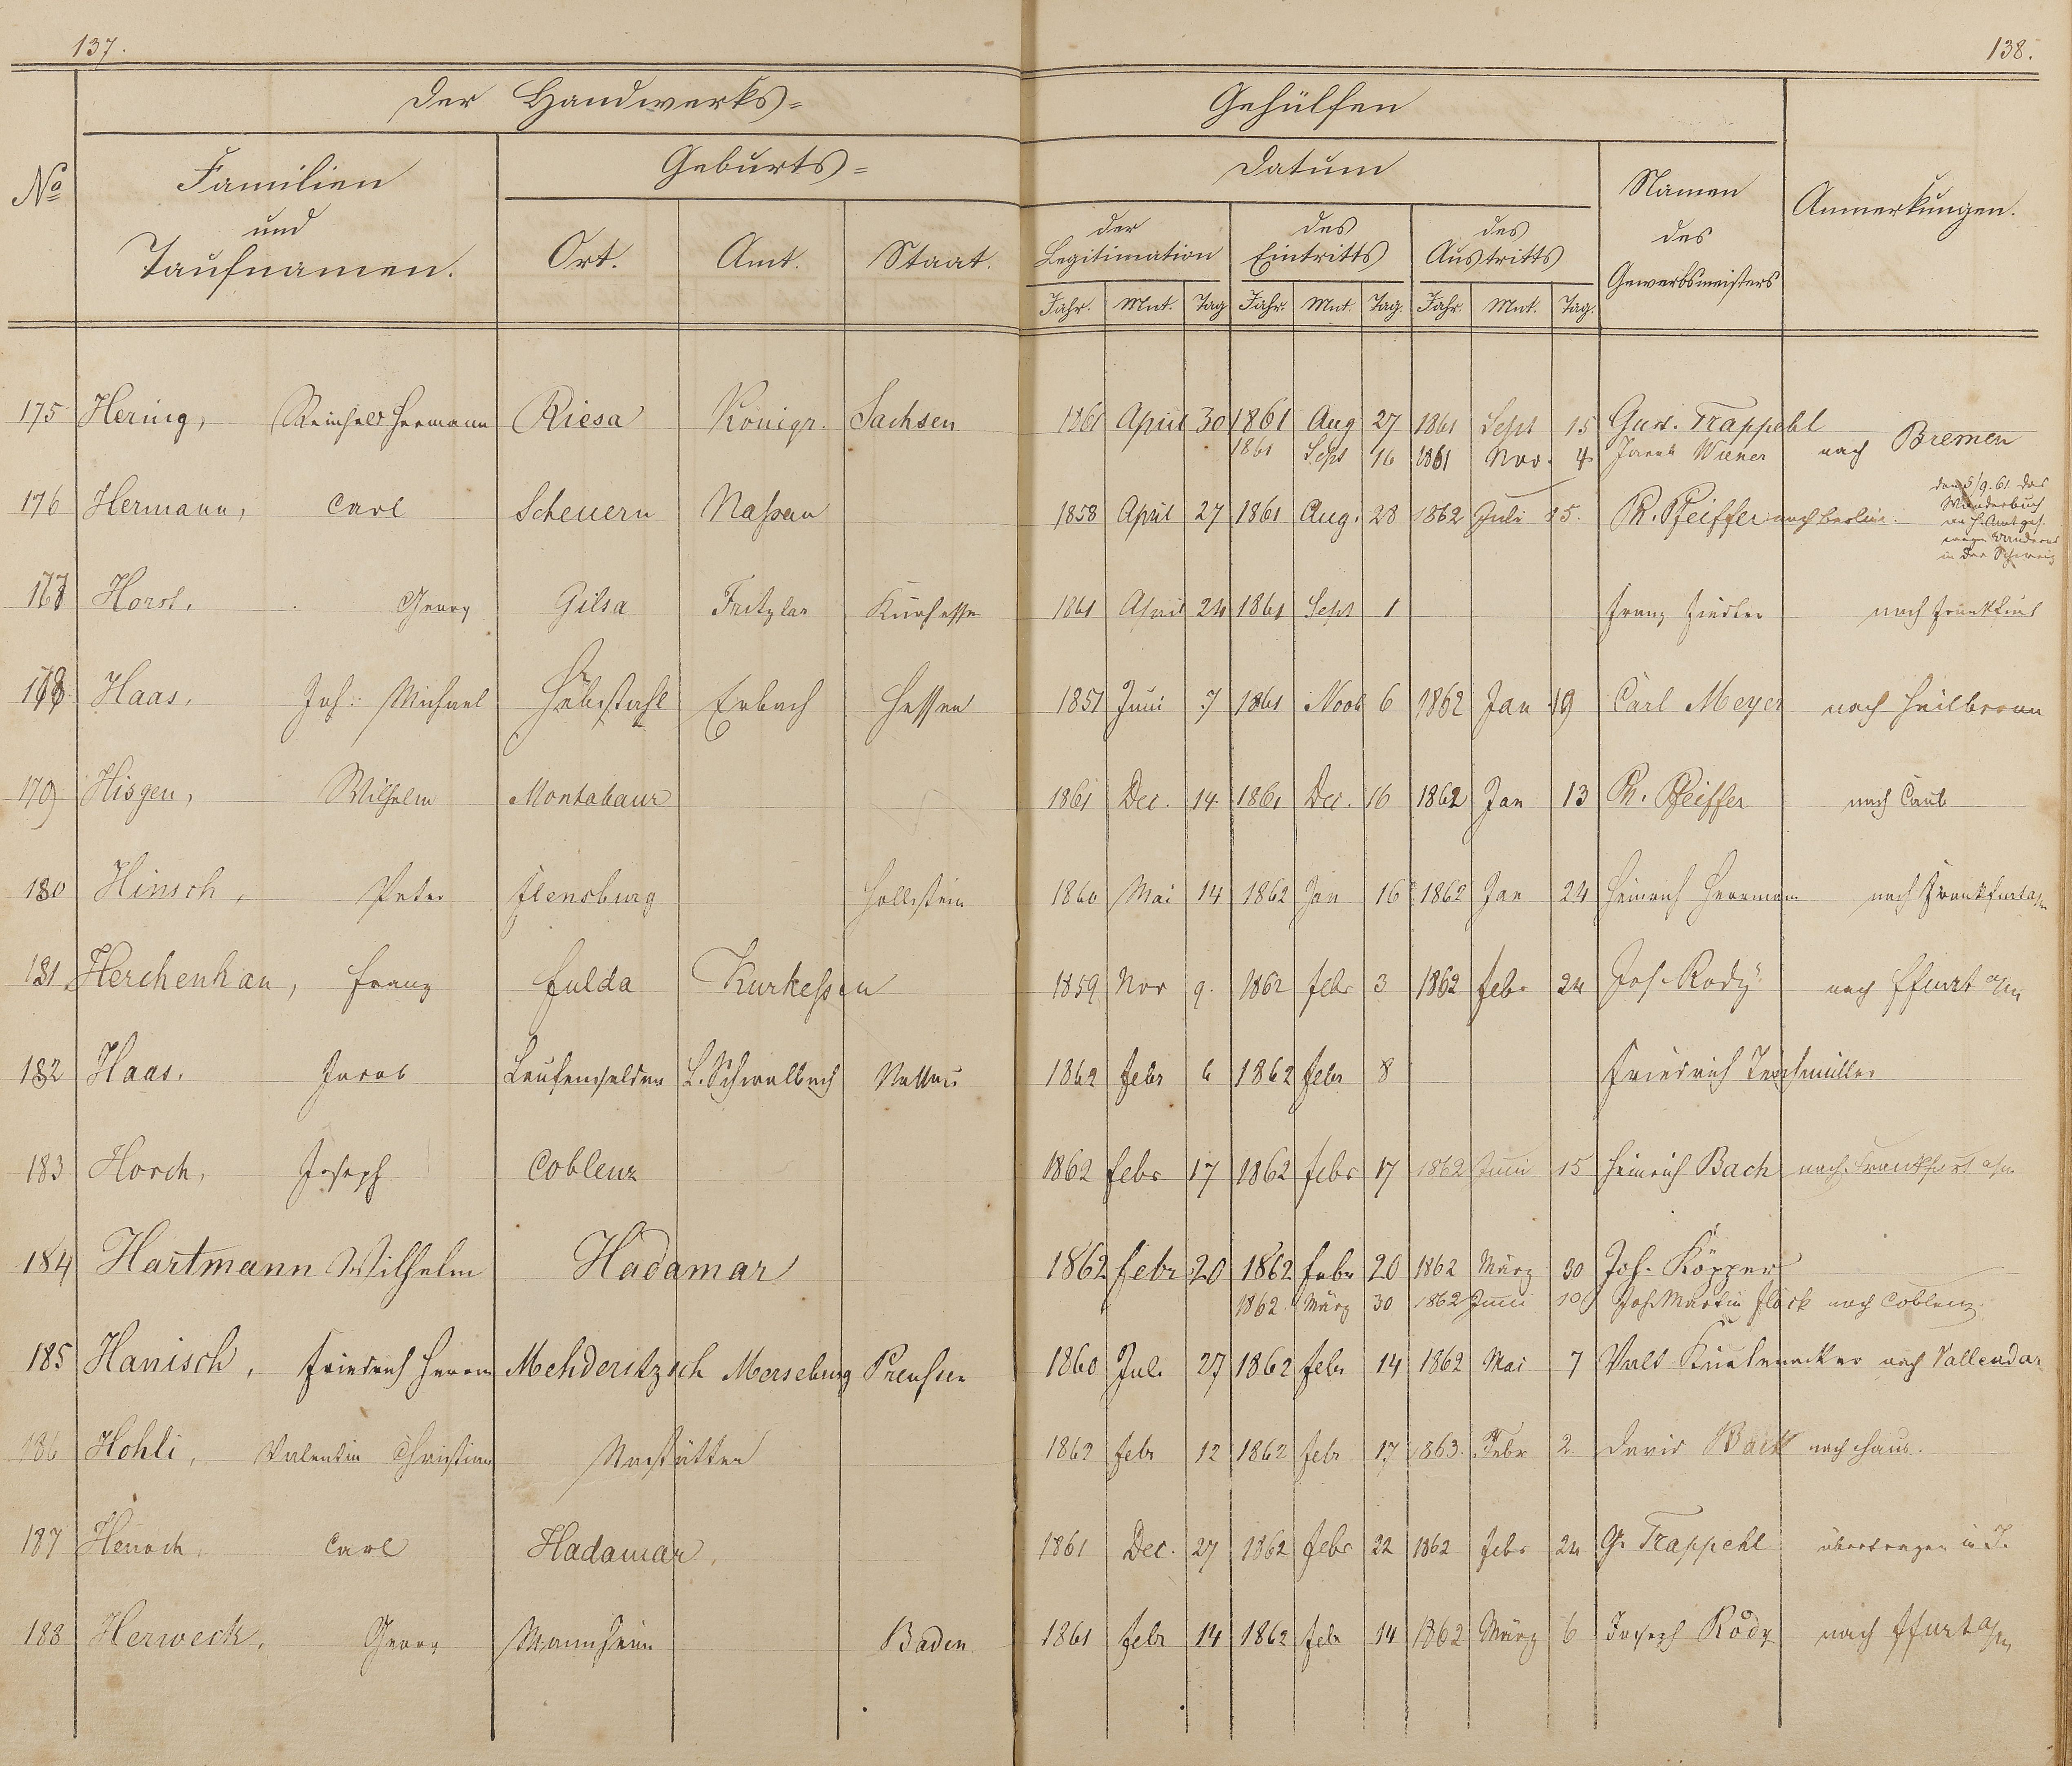 137.
138.
Der Handwerks= Gehülfen
No
Familien
und
Taufnamen.
Geburts=
Ort. Amt. Staat.
Datum
der
Legitimation
des
Eintritts
des
Austritts
Jahr. Mnt. Tag Jahr. Mnt. Tag. Jahr. Mnt. Tag.
Namen
des
Gewerbsmeisters
Anmerkungen.
175 Hering, Reinhold Hermann Riesa Königr. Sachsen 1861 April 30 1861 Aug 27 1861 Sept 15 Gust. Trappehl
1861 Sept 16 1861 Nov. 4 Jacob Wiener nach Bremen
176 Hermann, Carl Scheuern Naßau 1858 April 27 1861 Aug. 28 1862 Juli 15. Ph. Pfeiffer nach Berlin.
den 5/9. 61. das
Wanderbuch
an H. Amt ges.
wegen Wanderns
in der Schweiz
177 Horst, Georg Gilsa Fritzlar Kurhessen 1861 April 24 1861 Sept 1 Franz Fiedler nach Frankfurt
178 Haas, Joh: Michael Erbach Hessen 1851 Juni 7 1861 Novb 6 1862 Jan 19 Carl Meyer nach Heilbronn
179 Hisgen, Wilhelm Montabaur 1861 Dec. 14 1861 Dec. 16 1862 Jan 13 Ph. Pfeiffer nach Caub
180 Hinsch, Peter Flensburg Hollstein 1860 Mai 14 1862 Jan 16 1862 Jan 24 Heinrich Herrmann nach Frankfurt a/m
181 Herchenhan, Franz Fulda Kurheßen 1859 Nov 9. 1862 Febr 3 1862 Febr 24 Jos. Rody nach Ffurt a/m
182 Haas, Jacob Laufenselden L. Schwalbach Nassau 1862 Febr 6 1862 Febr 8 Friedrich Teschmüller
183 Horch, Joseph Coblenz 1862 Febr 17 1862 Febr 17 1862 Juni 15 Heinrich Bach nach Frankfurt a/m
184 Hartmann Wilhelm Hadamar 1862 Febr 20 1862 Febr 20 1862 März 30 Joh. Köpper
1862 März 30 1862 Juni 10 Joh. Martin Flöck nach Coblenz.
185 Hanisch, Friedrich Herm Mehderitzsch Merseburg Preußen 1860 Juli 27 1862 Febr 14 1862 Mai 7 nach Vallendar
186 Hohli, Valentin Christian Nastätten 1862 Febr 12 1862 Febr 17 1863. Febr 2 David Back nach Haus.
187 Henoch, Carl Hadamar, 1861 Dec. 27 1862 Febr 22 1862 Febr 24 G. Trappehl übertragen in J.
188 Herweck, Georg Mannheim Baden 1861 Febr 14 1862 Febr 14 1862 März 6 Joseph Rody nach Ffurt a/m